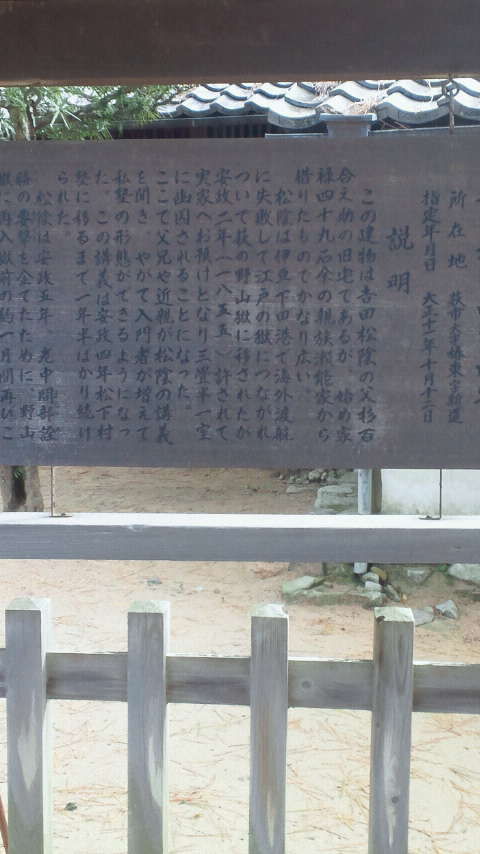 所在地　萩市大字椿東字新道
指定年月日　大正十一年十月十二日
説明
この建物は吉田松陰の父杉百
合之助の旧宅であるが　始め家
禄四十九石余の親族瀬能家から
借りたものでかなり広い。
松陰は伊豆下田港で海外渡航
に失敗して江戸の獄につながれ
ついで萩の野山獄に移されたが
安政二年（一八五五）許されて
実家へお預けとなり三畳半一室
に幽囚されることになった。
ここで父兄や近親が松陰の講義
を聞き　やがて入門者が増えて
私塾の形態ができるようになっ
た。この講義は安政四年松下村
塾に移るまで一年半ばかり続け
られた。
松陰は安政五年　老中間部詮
勝の要撃を企てたために　野山
獄に再入獄前の約一月間再びこ